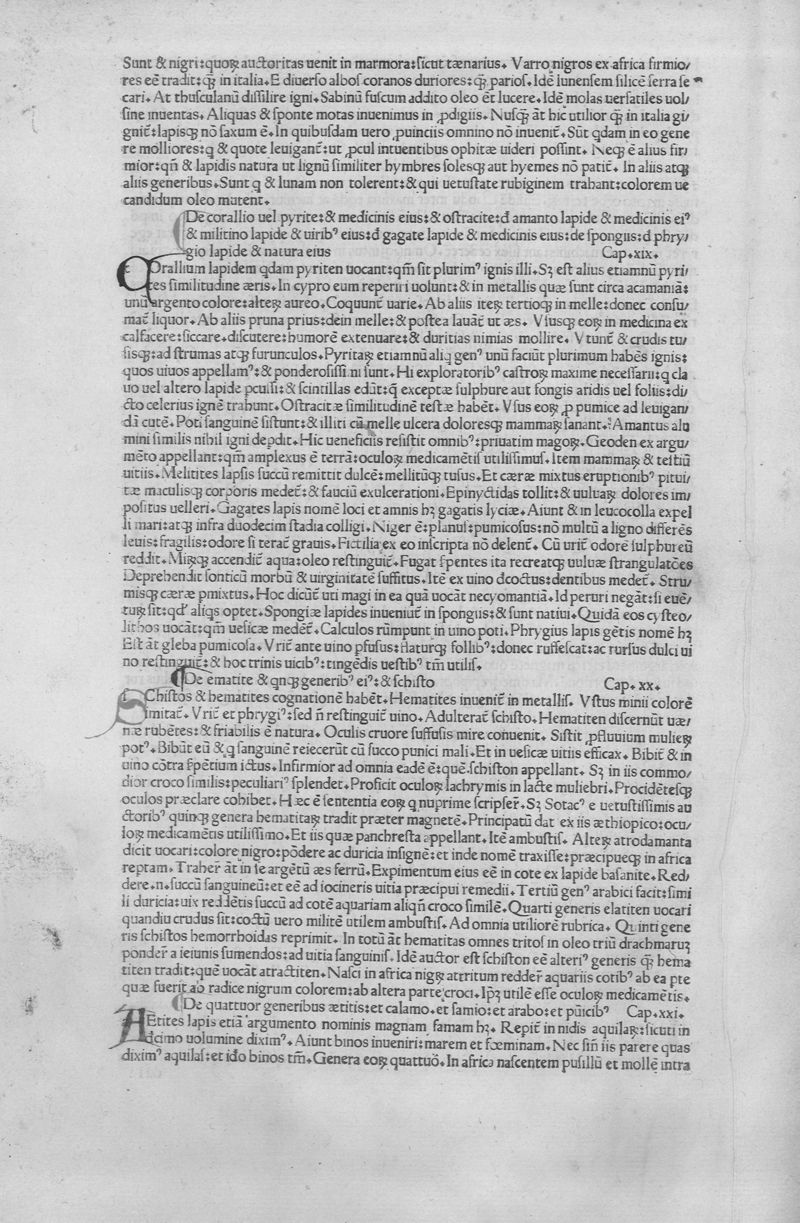 Sunt & nigri:quoꝝ auctoritas uenit in marmora:sicut tænarius. Varro nigros ex africa firmio/
res eē tradit:q̄ in italia. E diuerso albos coranos duriores:q̄ parios. Idē lunensem silicē serra se
cari. At thusculanū dissilire igni. Sabinū fuscum addito oleo ēt lucere. Idē molas uersatiles uol/
sine inuentas. Aliquas & sponte motas inuenimus in ꝓdigiis. Nusq̄ āt hic utilior q̄ in italia gi/
gnit̄:lapisq; nō saxum ē. In quibusdam uero ꝓuinciis omnino nō inuenit̄. Sūt qdam in eo gene
re molliores:q & quote leuigant̄:ut ꝓcul intuentibus ophitæ uideri possint. Neq; ē alius fir/
mior:qn̄ & lapidis natura ut lignū similiter hymbres solesq; aut hyemes nō patit̄. In aliis atq;
aliis generibus. Sunt q & lunam non tolerent:& qui uetustate rubiginem trahant:colorem ue
candidum oleo mutent.
De corallio uel pyrite:& medicinis eius:& ostracite:d amanto lapide & medicinis eiꝰ
& militino lapide & uiribꝰ eius:d gagate lapide & medicinis eius:de spongiis:d phry/
gio lapide & natura eius Cap.xix.
COrallium lapidem qdam pyriten uocant:qm̄ sit plurimꝰ ignis illi. Sꝫ est alius etiamnū pyri/
tes similitudine æris. In cypro eum reperiri uolunt:& in metallis quæ sunt circa acamaniā:
unū argento colore:alteꝝ aureo. Coquunt̄ uarie. Ab aliis iteꝝ tertioq; in melle:donec consu/
mat̄ liquor. Ab aliis pruna prius:dein melle:& postea lauāt̄ ut æs. Vsusq; eoꝝ in medicina ex
calfacere:siccare:discutere:humorē extenuare:& duritias nimias mollire. Vtunt̄ & crudis tu/
sisq;:ad strumas atq; furunculos. Pyritaꝝ etiamnū aliq genꝰ unū faciūt plurimum habēs ignis:
quos uiuos appellamꝰ:& ponderosissimi sunt. Hi exploratoribꝰ castroꝝ maxime necessarii:q cla
uo uel altero lapide ꝑcussi:& scintillas edūt:q̄ exceptæ sulphure aut fongis aridis uel foliis:di/
cto celerius ignē trahunt. Ostracitæ similitudinē testæ habēt. Vsus eoꝝ ꝓ pumice ad leuigan/
dā cutē. Poti sanguinē sistunt:& illiti cū melle ulcera doloresq; mammaꝝ sanant. Amantus alu
mini similis nihil igni deꝑdit. Hic ueneficiis resistit omnibꝰ:priuatim magoꝝ. Geoden ex argu/
mēto appellant:qm̄ amplexus ē terrā:oculoꝝ medicamētis utilissimus. Item mammaꝝ & testiū
uitiis. Melitites lapsis succū remittit dulcē:mellitūq; tusus. Et cæræ mixtus eruptionibꝰ pitui/
tæ maculisq; corporis medet̄:& fauciū exulcerationi. Epinyctidas tollit:& uuluaꝝ dolores im/
positus uelleri. Gagates lapis nomē loci et amnis hꝫ gagatis lyciæ. Aiunt & in leucocolla expel
li mari:atq; infra duodecim stadia colligi. Niger ē:planus:pumicosus:nō multū a ligno differēs
leuis:fragilis:odore si terat̄ grauis. Fictilia ex eo inscripta nō delent̄. Cū urit̄ odorē sulphureū
reddit. Miꝝq; accendit̄ aqua:oleo restinguit̄. Fugat serpentes ita recreatq; uuluæ strangulatōes
Deprehendit sonticū morbū & uirginitatē suffitus. Itē ex uino dcoctus:dentibus medet̄. Stru/
misq; cæræ ꝑmixtus. Hoc dicūt̄ uti magi in ea quā uocāt necyomantiā. Id peruri negāt:si euē/
tuꝝ sit:qđ aliqs optet. Spongiæ lapides inueniūt̄ in spongiis:& sunt natiui. Quidā eos cysteo/
lithos uocāt:qm̄ uesicæ medēt̄. Calculos rūmpunt in uino poti. Phrygius lapis gētis nomē hꝫ
Est āt gleba pumicosa. Vrit̄ ante uino ꝑfusus:flaturq; follibꝰ:donec ruffescat:ac rursus dulci ui
no restinguit̄:& hoc trinis uicibꝰ:tingēdis uestibꝰ tm̄ utilis.
De ematite & qnq; generibꝰ eiꝰ:& schisto Cap.xx.
SChistos & hematites cognationē habēt. Hematites inuenit̄ in metallis. Vstus minii colorē
imitat̄. Vrit̄ et phrygiꝰ:sed n̄ restinguit̄ uino. Adulterat̄ schisto. Hematiten discernūt uæ/
næ rubētes:& friabilis ē natura. Oculis cruore suffusis mire conuenit. Sistit ꝓfluuium mulieꝝ
potꝰ. Bibūt eū & q sanguinē reiecerūt cū succo punici mali. Et in uesicæ uitiis efficax. Bibit̄ & in
uino cōtra serpētium ictus. Infirmior ad omnia eadē ē:quē schiston appellant. Sꝫ in iis commo/
dior croco similis:peculiariꝰ splendet. Proficit oculoꝝ lachrymis in lacte muliebri. Procidētesq;
oculos præclare cohibet. Hæc ē sententia eoꝝ q nuprime scripser̄. Sꝫ Sotacꝰ e uetustissimis au
ctoribꝰ quinq; genera hematitaꝝ tradit præter magnetē. Principatū dat ex iis æthiopico:ocu/
loꝝ medicamētis utilissimo. Et iis quæ panchresta appellant. Itē ambustis. Alteꝝ atrodamanta
dicit uocari:colore nigro:pōdere ac duricia insignē:et inde nomē traxisse:præcipueq; in africa
reptam. Traher̄ āt in se argētū æs ferrū. Expimentum eius eē in cote ex lapide basanite. Red/
dere.n.succū sanguineū:et eē ad iocineris uitia præcipui remedii. Tertiū genꝰ arabici facit:simi
li duricia:uix reddētis succū ad cotē aquariam aliqn̄ croco similē. Quarti generis elatiten uocari
quandiu crudus sit:coctū uero militē utilem ambustis. Ad omnia utiliorē rubrica. Quinti gene
ris schistos hemorrhoidas reprimit. In totū āt hematitas omnes tritos in oleo triū drachmaruꝫ
ponder̄ a ieiunis sumendos:ad uitia sanguinis. Idē auctor est schiston eē alteriꝰ generis q̄ hema
titen tradit:quē uocāt atractiten. Nasci in africa nigꝝ:attritum redder̄ aquariis cotibꝰ ab ea pte
quæ fuerit ab radice nigrum colorem:ab altera parte croci. Ipꝫ utilē esse oculoꝝ medicamētis.
De quattuor generibus ætitis:et calamo.et samio:et arabo:et pūicibꝰ Cap.xxi.
AEtites lapis etiā argumento nominis magnam famam hꝫ. Repit̄ in nidis aquilaꝝ:sicuti in
dcimo uolumine diximꝰ. Aiunt binos inueniri:marem et fœminam. Nec sin̄ iis parere quas
diximꝰ aquilas:et ido binos tm̄. Genera eoꝝ quattuō. In africa nascentem pusillū et mollē intra